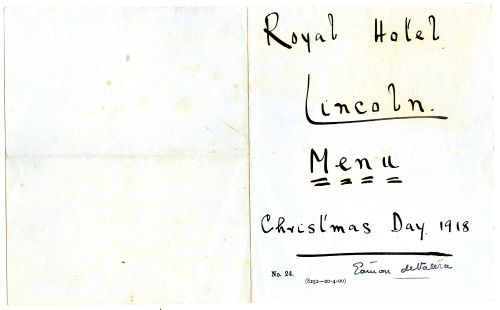 Royal Hotel
Lincoln.
Menu
Christmas Day, 1918
No. 24.
(8252—20-4-00)
Éamon de Valéra